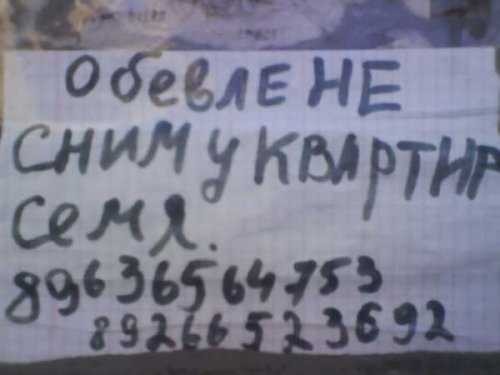 ОбевлЕНЕ
СНИМУ КВАРТИР
Семя.
89636564753
89266523692